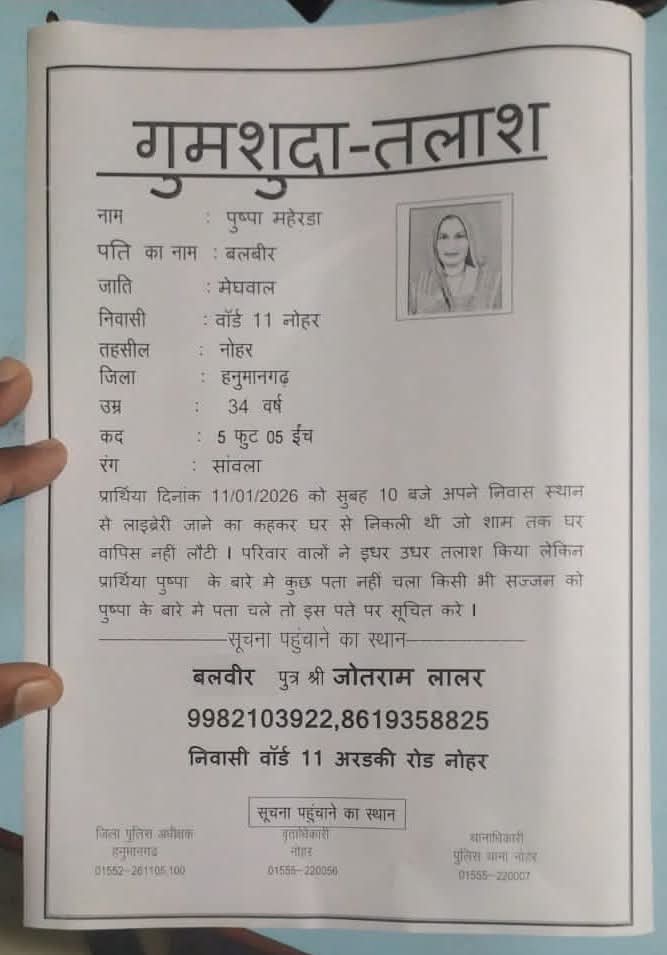 गुमशुदा-तलाश
नाम : पुष्पा महेरडा
पति का नाम : बलबीर
जाति : मेघवाल
निवासी : वॉर्ड 11 नोहर
तहसील : नोहर
जिला : हनुमानगढ़
उम्र : 34 वर्ष
कद : 5 फुट 05 ईंच
रंग : सांवला
प्रार्थिया दिनांक 11/01/2026 को सुबह 10 बजे अपने निवास स्थान
से लाइब्रेरी जाने का कहकर घर से निकली थी जो शाम तक घर
वापिस नहीं लौटी । परिवार वालों ने इधर उधर तलाश किया लेकिन
प्रार्थिया पुष्पा के बारे मे कुछ पता नहीं चला किसी भी सज्जन को
पुष्पा के बारे मे पता चले तो इस पते पर सूचित करे ।
सूचना पहुंचाने का स्थान
बलवीर पुत्र श्री जोतराम लालर
9982103922,8619358825
निवासी वॉर्ड 11 अरडकी रोड नोहर
सूचना पहूंचाने का स्थान
जिला पुलिस अधीक्षक
हनुमानगढ
01552-261105,100
वृताधिकारी
नोहर
01555-220056
थानाधिकारी
पुलिस थाना नोहर
01555-220007